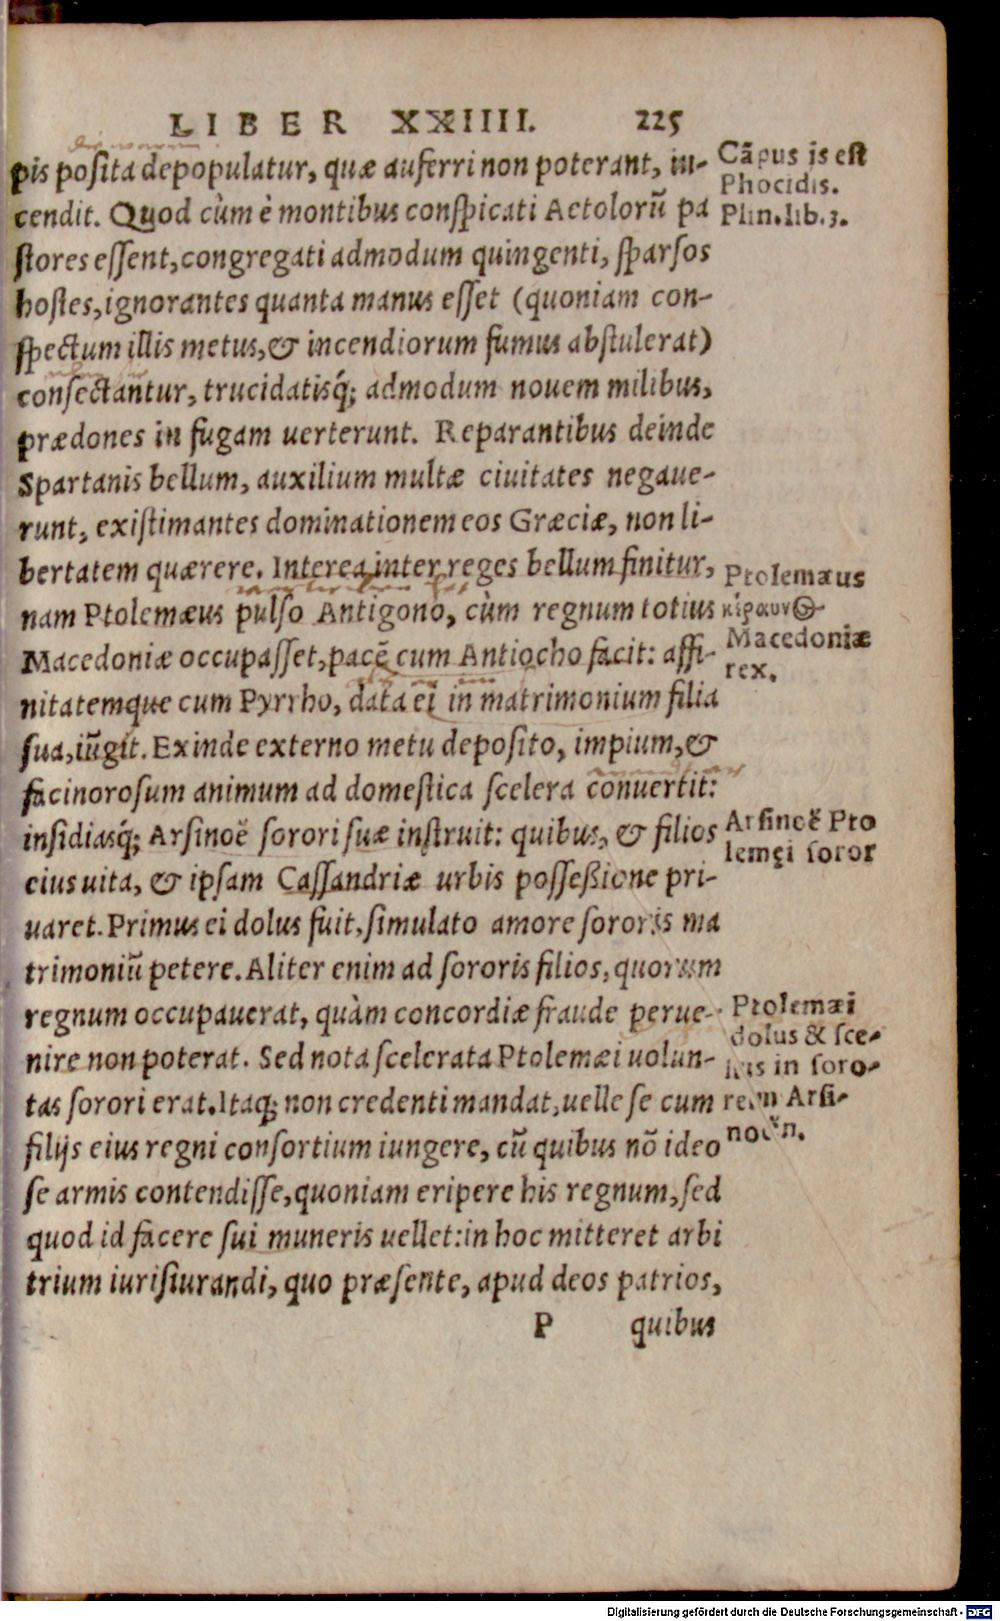 LIBER XXIIII. 225
pis posita depopulatur, quæ auferri non poterant, in-
cendit. Quod cùm è montibus conspicati Aetolorũ pa
stores essent, congregati admodum quingenti, sparsos
hostes, ignorantes quanta manus esset (quoniam con-
spectum illis metus, & incendiorum fumus abstulerat)
consectantur, trucidatisq́; admodum nouem milibus,
prædones in fugam uerterunt. Reparantibus deinde
Spartanis bellum, auxilium multæ ciuitates negaue-
runt, existimantes dominationem eos Græciæ, non li-
bertatem quærere. Interea inter reges bellum finitur,
nam Ptolemæus pulso Antigono, cùm regnum totius
Macedoniæ occupasset, pacẽ cum Antiocho facit: affi-
nitatemque cum Pyrrho, data ei in matrimonium filia
sua, iũgit. Exinde externo metu deposito, impium, &
facinorosum animum ad domestica scelera conuertit:
insidiasq́; Arsinoë sorori suæ instruit: quibus, & filios
eius uita, & ipsam Cassandriæ urbis possessione pri-
uaret. Primus ei dolus fuit, simulato amore sororis ma
trimoniũ petere. Aliter enim ad sororis filios, quorum
regnum occupauerat, quàm concordiæ fraude perue-
nire non poterat. Sed nota scelerata Ptolemæi uolun-
tas sorori erat. Itaq; non credenti mandat, uelle se cum
filijs eius regni consortium iungere, cũ quibus nõ ideo
se armis contendisse, quoniam eripere his regnum, sed
quod id facere sui muneris uellet: in hoc mitteret arbi
trium iurisiurandi, quo præsente, apud deos patrios,
P quibus
Cãpus is est
Phocidis.
Plin. lib. 3.
Ptolemæus
κέραυν⊙-
Macedoniæ
rex.
Arsinoë Pto
lemęi soror
Ptolemæi
dolus & sce-
lus in soro-
rem Arsi-
noën.
Digitalisierung gefördert durch die Deutsche Forschungsgemeinschaft - DFG